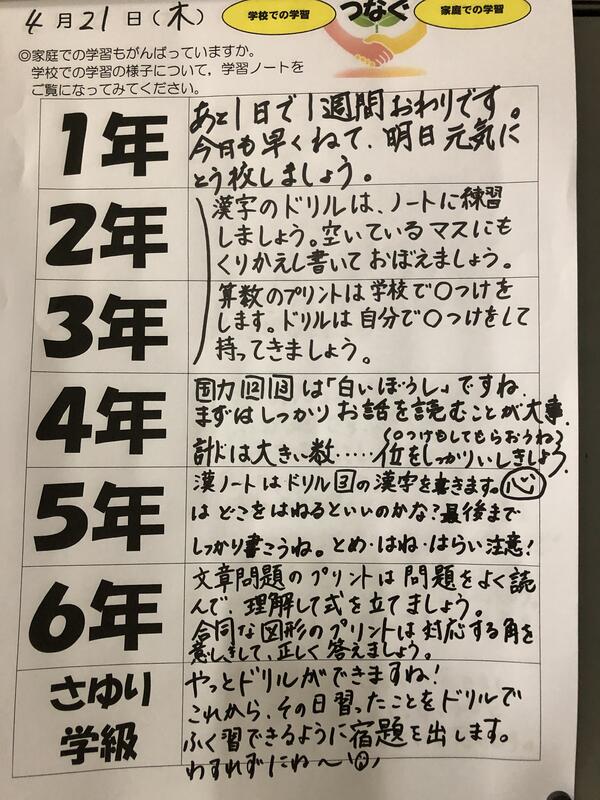 4月21日(木)
学校での学習
つなぐ
家庭での学習
◎家庭での学習もがんばっていますか。
学校での学習の様子について，学習ノートを
ご覧になってみてください。
1年
あと1日で1週間おわりです。
今日も早くねて、明日元気に
とう校しましょう。
2年
漢字のドリルは、ノートに練習
しましょう。空いているマスにも
くりかえし書いておぼえましょう。
3年
算数のプリントは学校で○つけを
します。ドリルは自分で○つけをして
持ってきましょう。
4年
国力12 13は「白いぼうし」ですね
まずはしっかりお話を読むことが大事.
○つけもしてもらおうね
計ドは大きい数……位をしっかりいしきしよう.
5年
漢ノートはドリル3の漢字を書きます。心
はどこをはねるといいのかな?最後まで
しっかり書こうね。とめ・はね・はらい注意!
6年
文章問題のプリントは問題をよく読
んで、理解して式を立てましょう。
合同な図形のプリントは対応する角を
意しきして、正しく答えましょう。
さゆり
学級
やっとドリルができますね!
これから、その日習ったことをドリルで
ふく習できるように宿題を出します。
わすれずにね〜